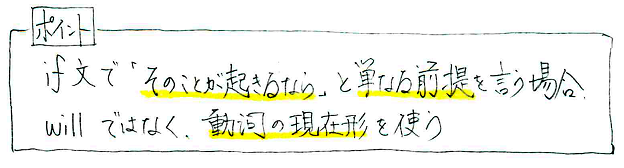 ポイント
if文で「そのことが起きるなら」と単なる前提を言う場合、
willではなく、動詞の現在形を使う